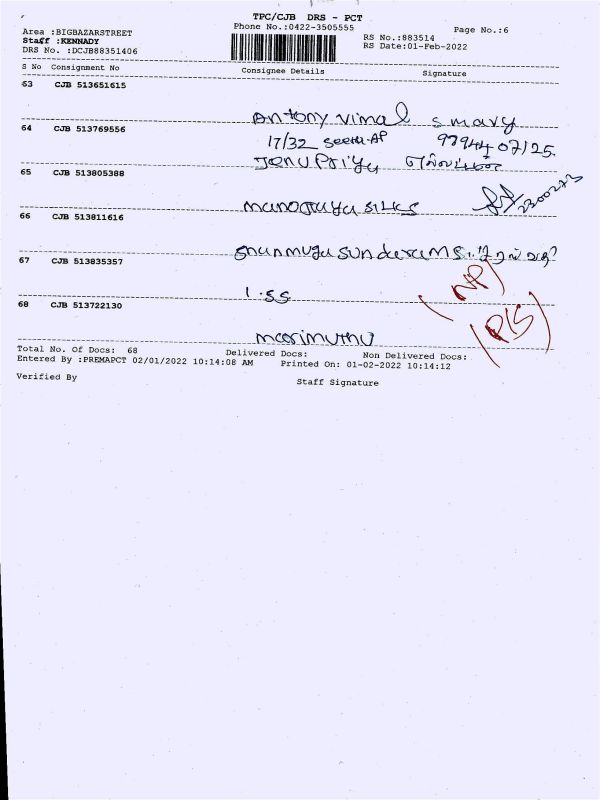 TPC/CJB DRS - PCT
Phone No.:0422-3505555
Page No.:6
Area :BIGBAZARSTREET
Staff :KENNADY
DRS No. :DCJB88351406
RS No.:883514
RS Date:01-Feb-2022
S No Consignment No Consignee Details Signature
63 CJB 513651615
Antony vimal s mary
64 CJB 513769556
17/32 seetha AP 97944 07125.
JanuPriya
65 CJB 513805388
manojaya silks
66 CJB 513811616
shanmuga sundaram S
67 CJB 513835357
(NP)
I.SS
68 CJB 513722130
(PIS)
marimuthu
Total No. Of Docs: 68 Delivered Docs: Non Delivered Docs:
Entered By :PREMAPCT 02/01/2022 10:14:08 AM Printed On: 01-02-2022 10:14:12
Verified By Staff Signature